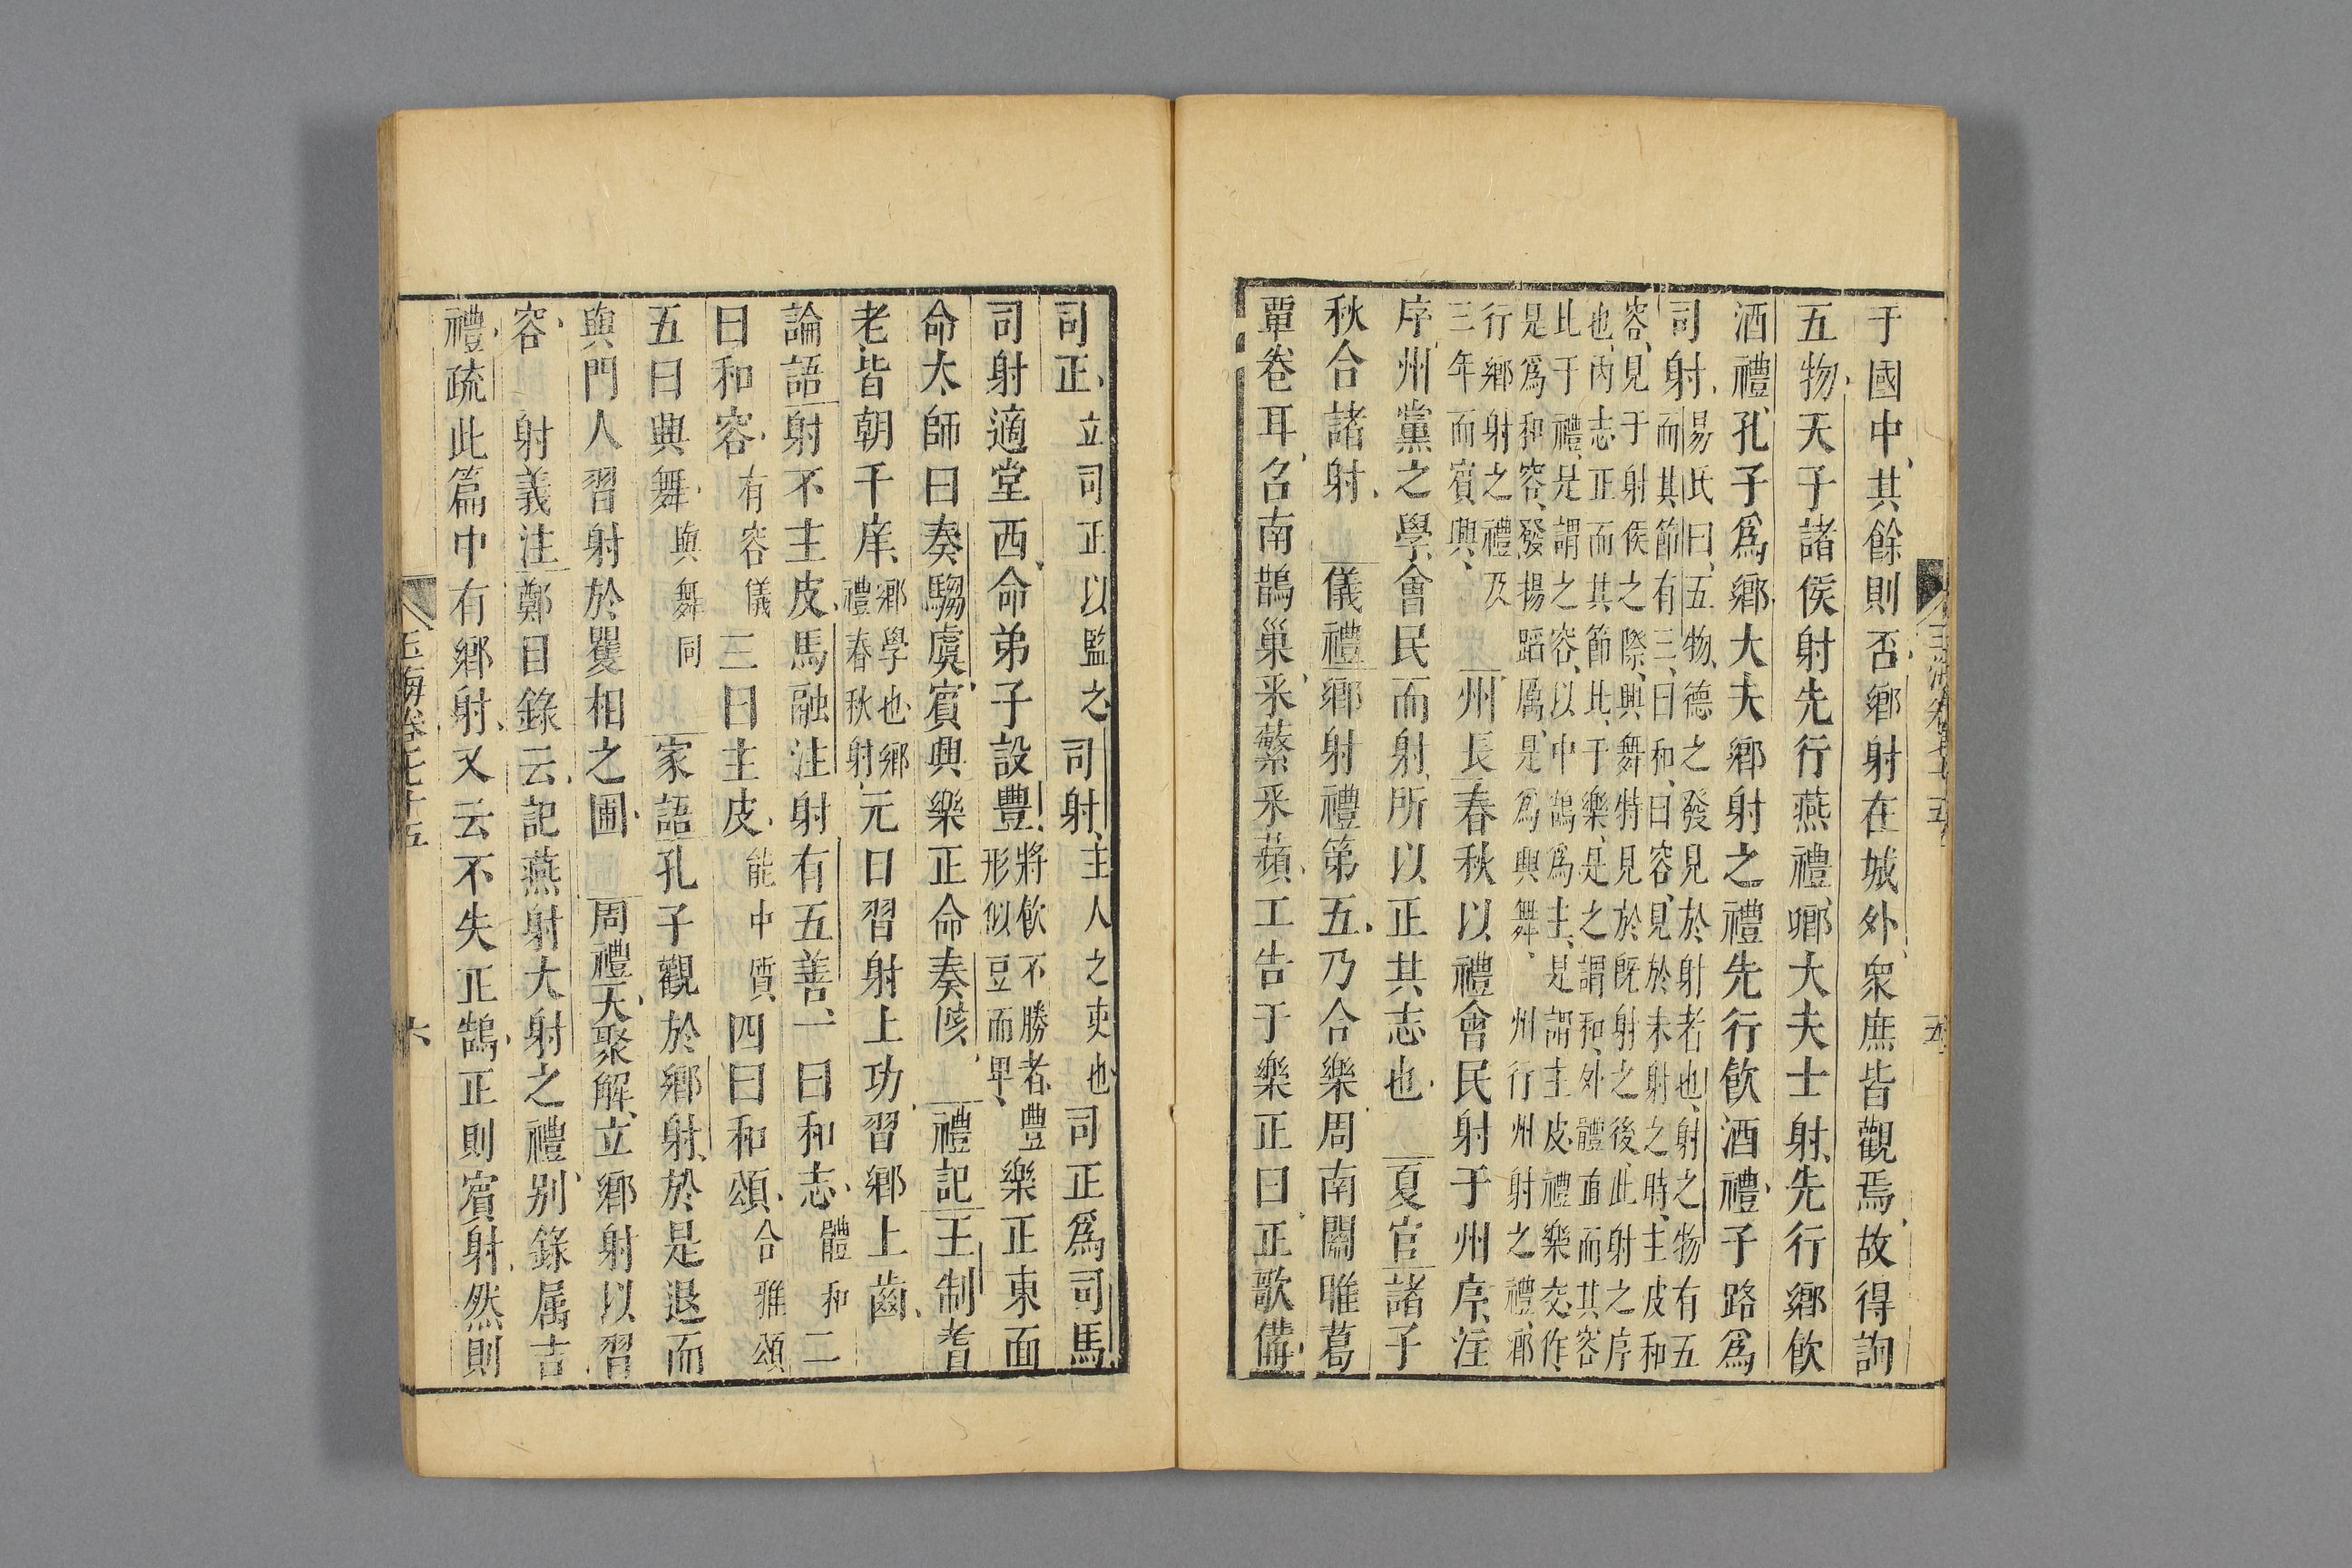 玉海卷七十五 五
于國中其餘則否鄉射在城外衆庶皆觀焉故得詢
五物天子諸侯射先行燕禮鄉大夫士射先行鄉飲
酒禮孔子爲鄉大夫鄉射之禮先行飲酒禮子路爲
司射
易氏曰五物德之發見於射者也射之物有五
而其節有三曰和曰容見於未射之時主皮和
容見于射侯之際興舞特見於旣射之後此射之序
也內志正而其節比于樂是之謂和外體直而其容
比于禮是謂之容以中鵠爲主是謂主皮禮樂交作
是爲和容發揚蹈厲是爲興舞 州行州射之禮鄉
行鄉射之禮及
三年而賓興
州長春秋以禮會民射于州序注
序州黨之學會民而射所以正其志也 夏官諸子
秋合諸射 儀禮鄉射禮第五乃合樂周南關雎葛
覃卷耳召南鵲巢采蘩采蘋工告于樂正曰正歌備
司正立司正以監之司射主人之吏也司正爲司馬
司射適堂西命弟子設豐
將飲不勝者豐
形似豆而卑
樂正東面
命大師曰奏騶虞賓興樂正命奏陔 禮記王制耆
老皆朝于庠
鄉學也鄉
禮春秋射
元日習射上功習鄉上齒
論語射不主皮馬融注射有五善一曰和志體和二
曰和容有容儀三曰主皮能中質四曰和頌合雅頌
五曰興舞與舞同 家語孔子觀於鄉射於是退而
與門人習射於矍相之圃 周禮天聚解立鄉射以習
容 射義注鄭目錄云記燕射大射之禮别錄属吉
禮疏此篇中有鄉射又云不失正鵠正則賓射然則
玉海卷七十五 六